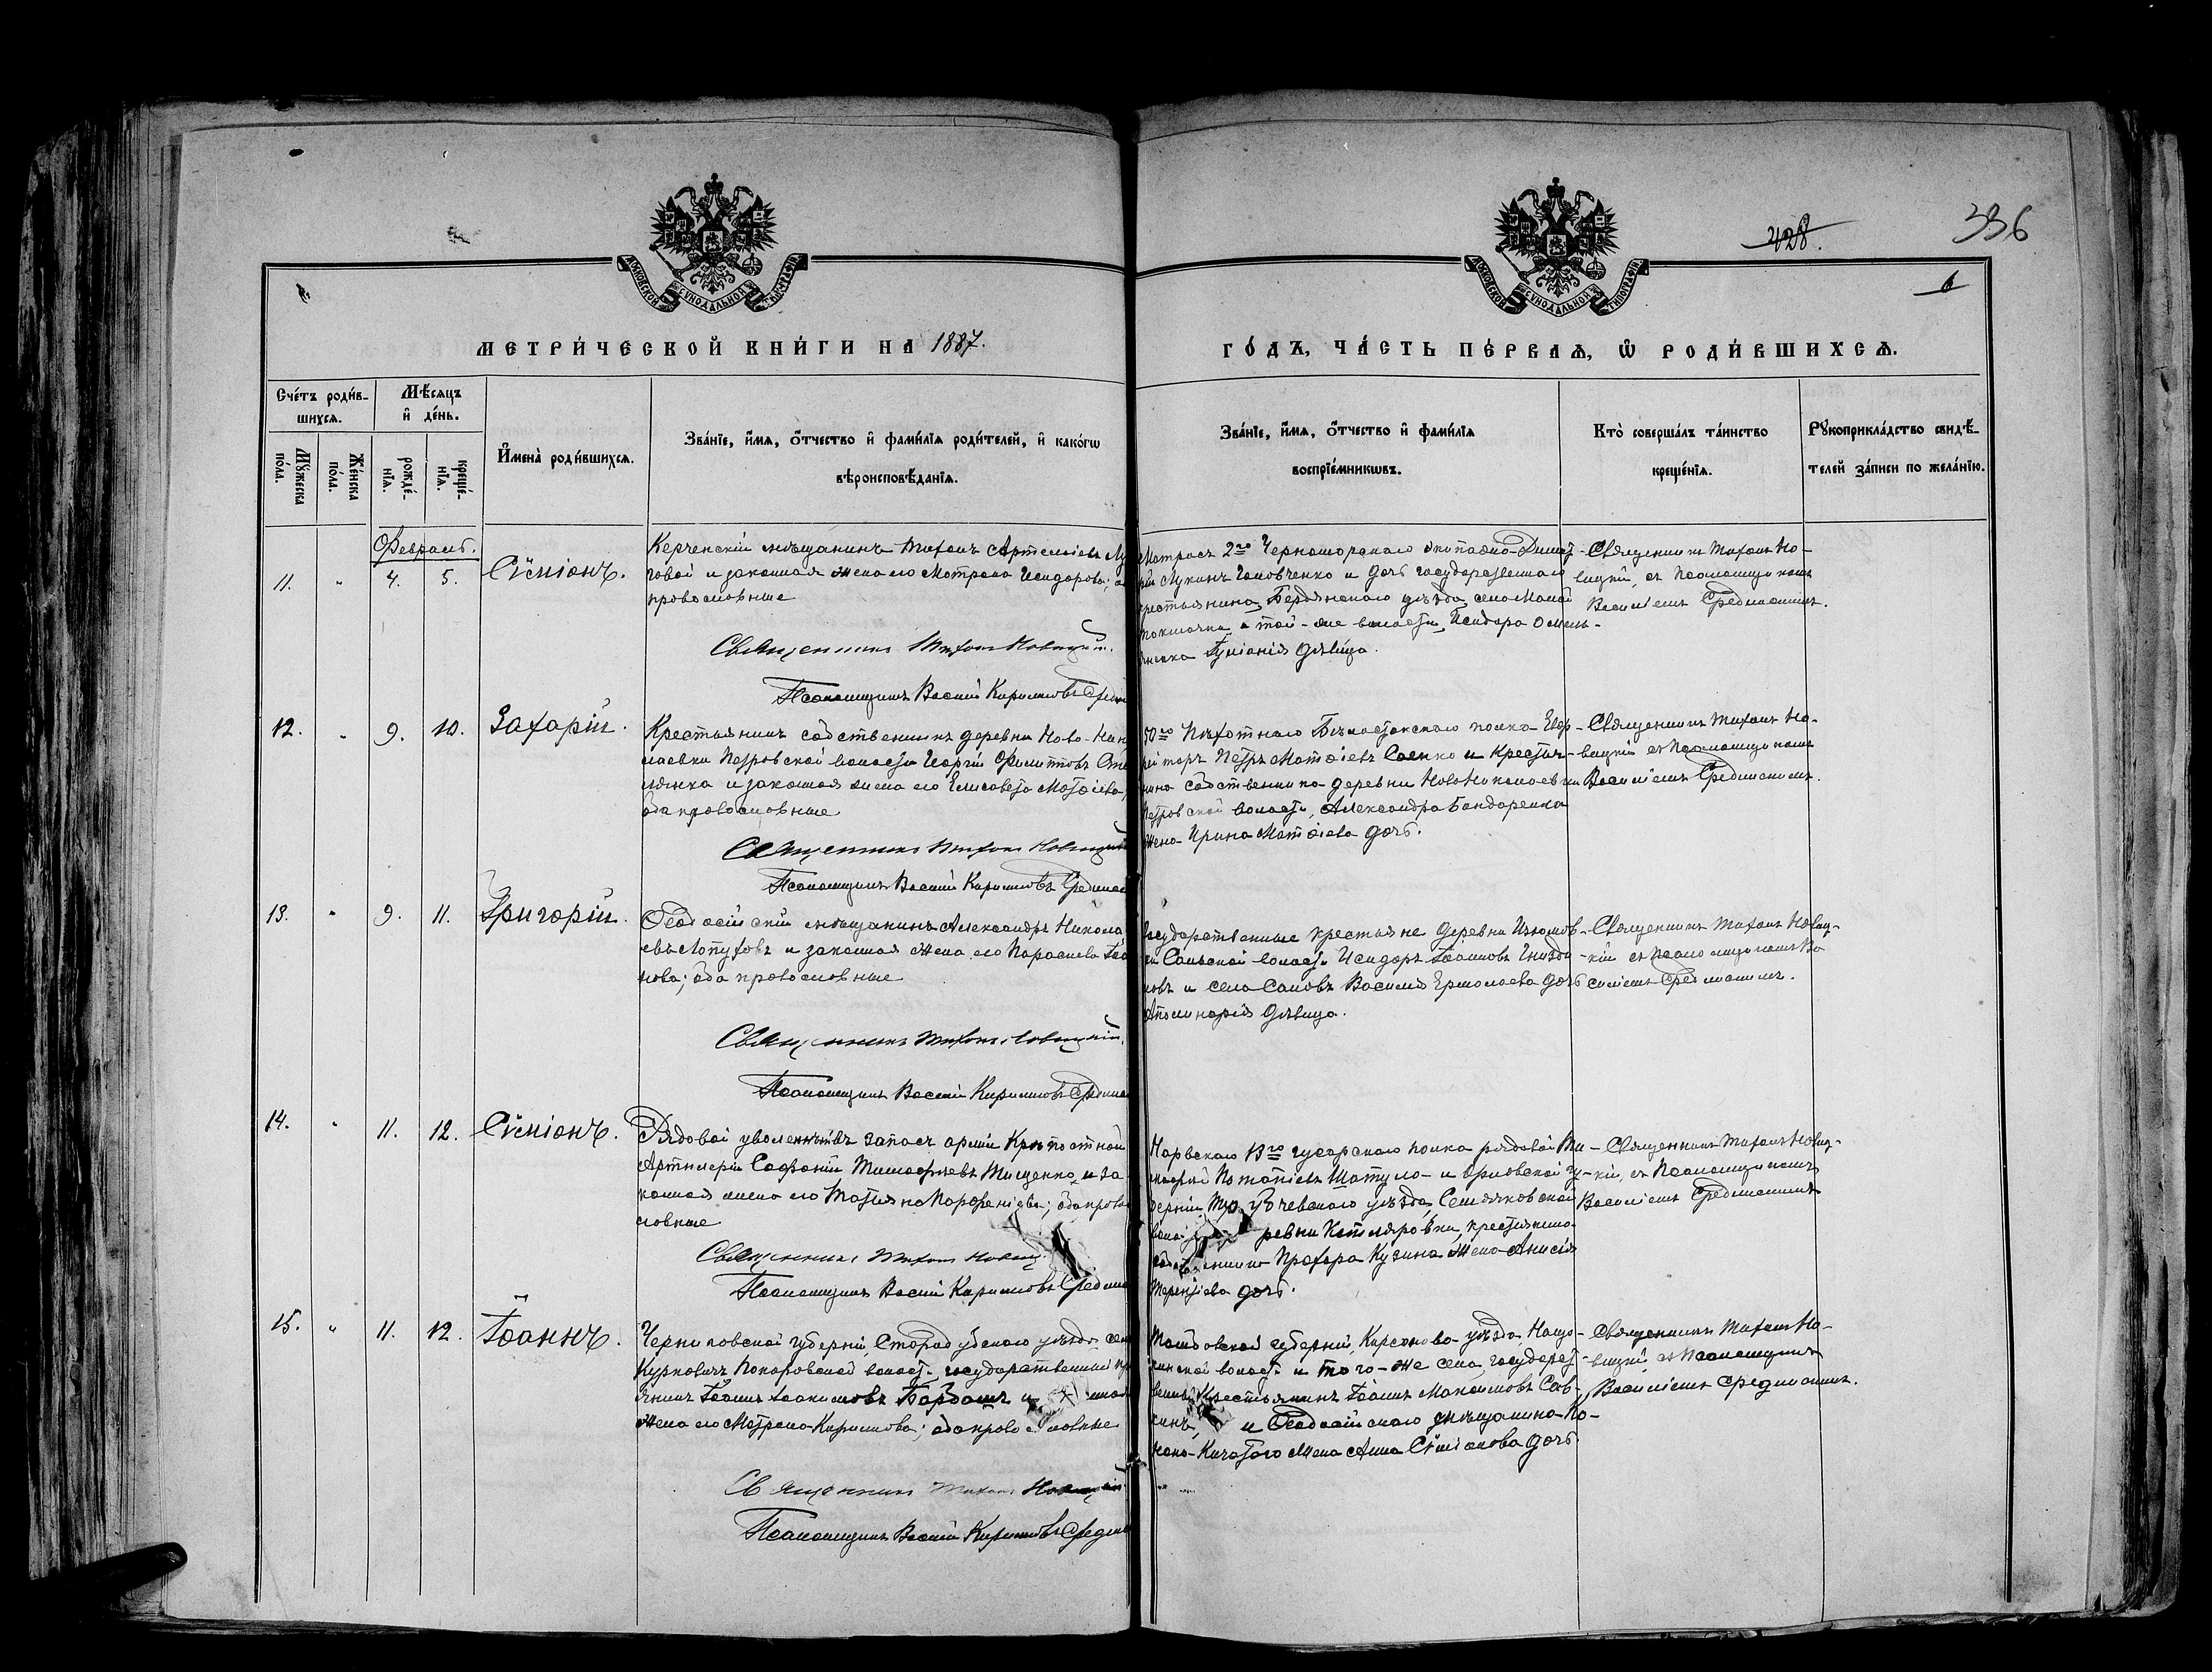 428.
336
6
МОСКОВСКОЙ СУНОДАЛЬНОЙ ТИПОГРАФІИ
МОСКОВСКОЙ СУНОДАЛЬНОЙ ТИПОГРАФІИ
МЕТРИ́ЧЕСКОЙ КНИ́ГИ НА 1887.
ГО́ДЪ, ЧА́СТЬ ПЕ́РВАѦ, Ѡ҆ РОДИ́ВШИХСѦ.
Сче́тъ роди́в-
шихсѧ.
Мѣ́сѧцъ
и҆ де́нь.
Мꙋ́жеска
по́ла.
Же́нска
по́ла.
рожде́-
нїѧ.
креще́-
нїѧ.
И҆мена̀ роди́вшихсѧ.
Зва́нїе, и҆́мѧ, о҆́тчество и҆ фами́лїѧ роди́телей, и҆ како́гѡ
вѣроисповѣ́данїѧ.
Зва́нїе, и҆́мѧ, о҆́тчество и҆ фами́лїѧ
воспрїе́мникѡвъ.
Кто̀ соверша́лъ та́инство
креще́нїѧ.
Рꙋкоприкла́дство свидѣ́-
телей за́писи по жела́нїю.
Февраль.
11. " 4. 5. Сѵмеонъ.
Керченскій мѣщанинъ Тихонъ Артеміевъ
говой и законная жена его Матрона Исидорова;
православные
Священникъ Тихонъ Новицкій.
Псаломщикъ Василій Кирилловъ
Матросъ 2го Черноморскаго экипажа Димит-
рій Лукинъ Головченко и дочь государственнаго
крестьянина Бердянскаго уѣзда, села Малой
Токмачки и той-же волости, Исидора Омель-
яненка Іуліанія дѣвица.
Священникъ Тихонъ Но-
вицкій, съ Псаломщикомъ
Василіемъ Срединскимъ.
12. " 9. 10. Захарій.
Крестьянинъ собственникъ деревни Ново-Ни
лаевки Петровской волости Георгій Филипповъ Оме
лянка и законная жена его Елисавета Матѳіева,
оба православные
Священникъ Тихонъ Новицкій
Псаломщикъ Василій Кирилловъ
50го Пѣхотнаго Бѣлостокскаго полка Ефр-
ейторъ Петръ Матѳіевъ Саенко и крестья-
нина собственника деревни Ново Николаевки
Петровской волости, Александра Бондаренка
жена Ирина Матѳіева дочь.
Священникъ Тихонъ Но-
вицкій съ Псаломщикомъ
Василіемъ Срединскимъ.
13. " 9. 11. Григорій.
Ѳеодосійскій мѣщанинъ Александръ Никола
евъ Лопуховъ и законная жена его Параскева Іоа
нова; оба православные
Священникъ Тихонъ Новицкій.
Псаломщикъ Василій Кирилловъ
Государственные крестьяне деревни Изюмов-
ки Салынской волости Исидоръ Іоанновъ
новъ и села Саловъ Василія Ермолаева дочь
Аполинарія дѣвица.
Священникъ Тихонъ Новиц-
кій съ псаломщикомъ Ва
силіемъ Срединскимъ.
14. " 11. 12. Сѵмеонъ.
Рядовой уволенный въ запасъ арміи Крѣпостной
Артилеріи Софроній Тимофѣевъ Тищенко и за
конная жена его Татіяна Парфеніева; оба право
словные
Священникъ Тихонъ Новиц
Псаломщикъ Василій Кирилловъ
Нарвскаго 13го гусарскаго полка рядовой Ти-
моѳей Потапіевъ Шатуло и Орловской гу-
берніи, Трубчевскаго уѣзда, Семячковской
ревни Котляровки, крестьянина
Прохора Кузина жена Анисія
Терентіева дочь.
Священникъ Тихонъ Новиц-
кій, съ Псаломщикомъ
Василіемъ Срединскимъ
15. " 11. 12. Іоаннъ.
Черниговской губерніи, Стародубскаго уѣзда
Курковичъ Понуровской волости государственный кр
янинъ Іоаннъ Іоакимовъ Бардашъ и
жена его Матрона Кириллова; оба православные
Священникъ Тихонъ Новицкій
Псаломщикъ Василій Кирилловъ
Тамбовской губерніи, Кирсанова уѣзда,
волости и того-же села, государст-
венный крестьянинъ Іоаннъ Максимовъ Сав-
кинъ и Ѳеодосійскаго мѣщанина Ко-
нона Кичатаго жена Анна Сѵмеонова дочь.
Священникъ Тихонъ Но-
вицкій съ Псаломщикомъ
Василіемъ Срединскимъ.